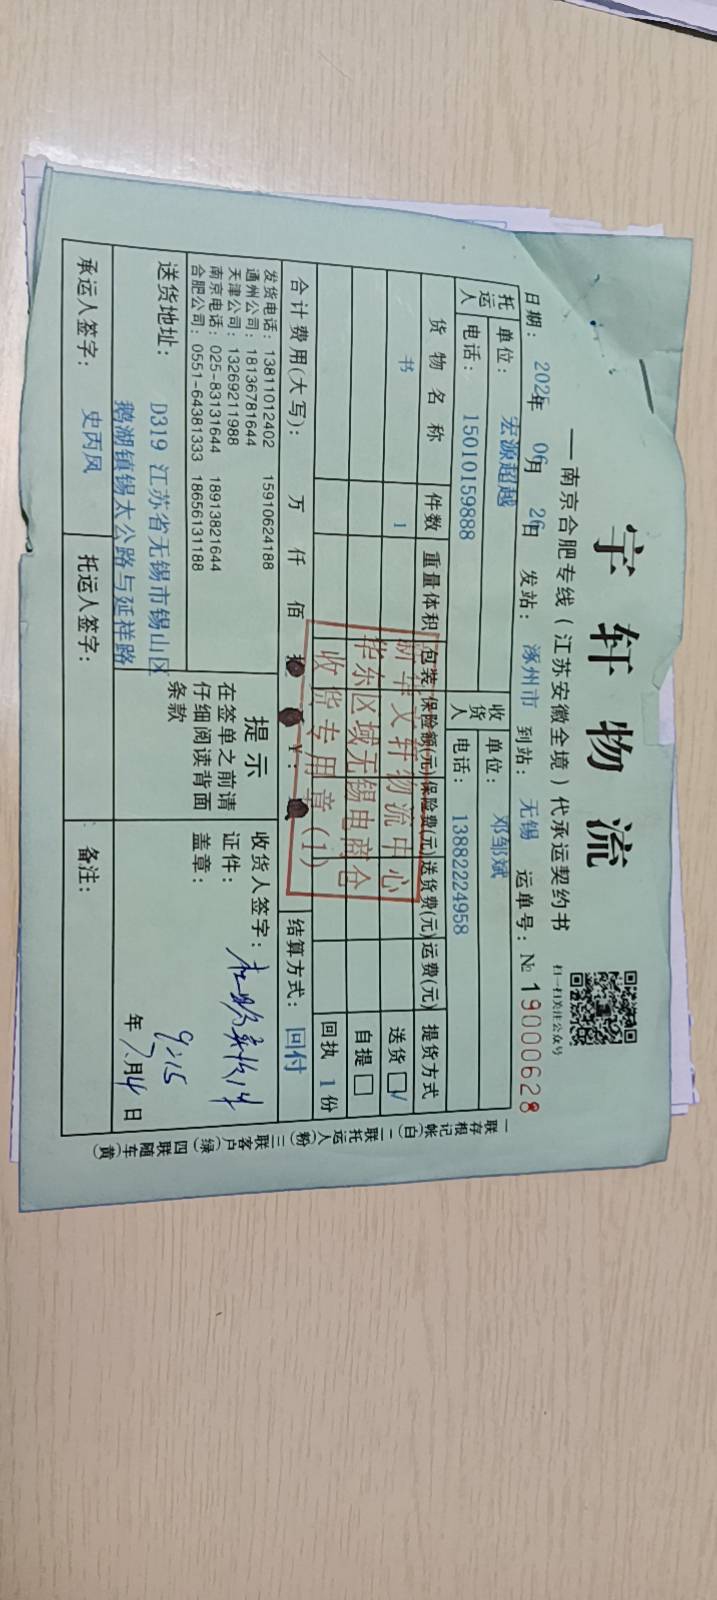 宇轩物流
—南京合肥专线(江苏安徽全境)代承运契约书
扫一扫关注公众号
日期: 2025年 06月 26日 发站: 涿州市 到站: 无锡 运单号: № 19000628
托运人 单位: 宏源超越 收货人 单位: 邓邹斌
电话: 15010159888 电话: 13882224958
货物名称 件数 重量体积 包装 保险额(元) 保险费(元) 送货费(元) 运费(元) 提货方式
书 1 送货☑
自提□
回执 1 份
新华文轩物流中心
华东区域无锡电商仓
收货专用章(1)
合计费用(大写): 万 仟 佰 拾 ¥: 结算方式: 回付
发货电话: 13811012402 15910624188
通州公司: 18136781644
天津公司: 13269211988
南京电话: 025-83131644 18913821644
合肥公司: 0551-64381333 18656131188
提示
在签单之前请
仔细阅读背面
条款
收货人签字:
证件:
盖章:
9:15
年 7月4日
送货地址: D319 江苏省无锡市锡山区
鹅湖镇锡太公路与延祥路
承运人签字: 史丙凤 托运人签字: 备注:
一联存根记帐(白) 二联托运人(粉) 三联客户(绿) 四联随车(黄)